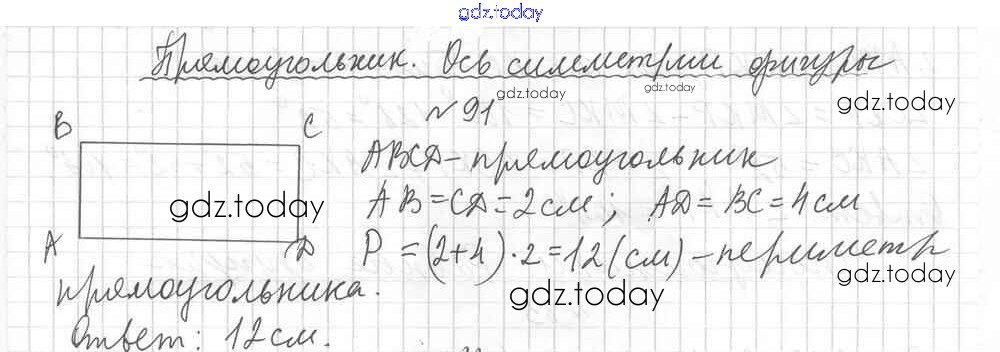 gdz.today
Прямоугольник. Ось симметрии фигуры
gdz.today
gdz.today
gdz.today
№ 91
B
C
ABCD – прямоугольник
gdz.today
AB = CD = 2 см; AD = BC = 4 см
A
D
P = (2+4) · 2 = 12 (см) – периметр
gdz.today
прямоугольника.
gdz.today
Ответ: 12 см.